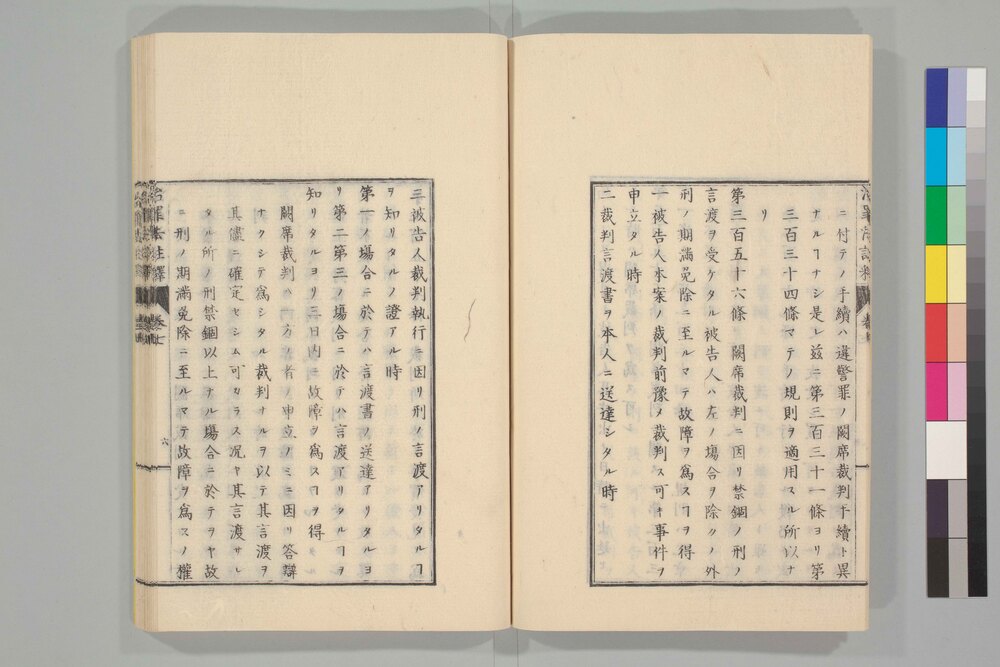 ニ付テノ手續ハ違警罪ノ闕席裁判手續ト異
ナルヿナシ是レ茲ニ第三百三十一條ヨリ第
三百三十四條マテノ規則ヲ適用スル所以ナ
リ
第三百五十六條 闕席裁判ニ因リ禁錮ノ刑ノ
言渡ヲ受ケタル被告人ハ左ノ場合ヲ除クノ外
刑ノ期滿免除ニ至ルマテ故障ヲ爲スヿヲ得
一被告人本案ノ裁判前豫メ裁判ス可キ事件ヲ
申立タル時
二裁判言渡書ヲ本人ニ送達シタル時
三被告人裁判執行ニ因リ刑ノ言渡アリタルヿ
ヲ知リタルノ證アル時
第一ノ場合ニ於テハ言渡書ノ送達アリタルヨ
リ第二第三ノ場合ニ於テハ言渡アリタルヿヲ
知リタルヨリ三日内ニ故障ヲ爲スヿヲ得
闕席裁判ハ一方ノ者ノ申立ノミニ因リ答辯
ナクシテ爲シタル裁判ナルヲ以テ其言渡ヲ
其儘ニ確定セシム可カラス况ヤ其言渡サレ
タル所ノ刑禁錮以上ナル塲合ニ於テヲヤ故
ニ刑ノ期滿免除ニ至ルマテ故障ヲ爲スノ權
治罪法註釋 卷七
六